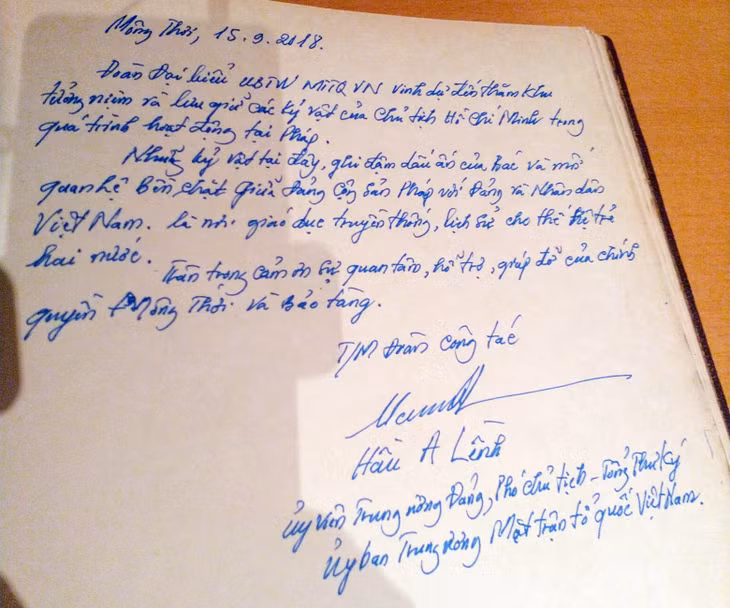 Mông Thơi, 15.9.2018.
Đoàn Đại biểu UBTW MTTQ VN vinh dự đến thăm khu
tưởng niệm và lưu giữ các kỷ vật của Chủ tịch Hồ Chí Minh trong
quá trình hoạt động tại Pháp.
Những kỷ vật tại đây, ghi đậm dấu ấn của Bác và mối
quan hệ bền chặt giữa Đảng Cộng sản Pháp với Đảng và Nhân dân
Việt Nam. là nơi giáo dục truyền thống, lịch sử cho thế hệ trẻ
hai nước.
Trân trọng cảm ơn sự quan tâm, hỗ trợ, giúp đỡ của chính
quyền Mông Thơi và Bảo tàng.
T/M Đoàn công tác
Hầu A Lềnh
Ủy viên Trung ương Đảng, Phó chủ tịch - Tổng Thư ký
Ủy ban Trung ương Mặt trận tổ quốc Việt Nam.